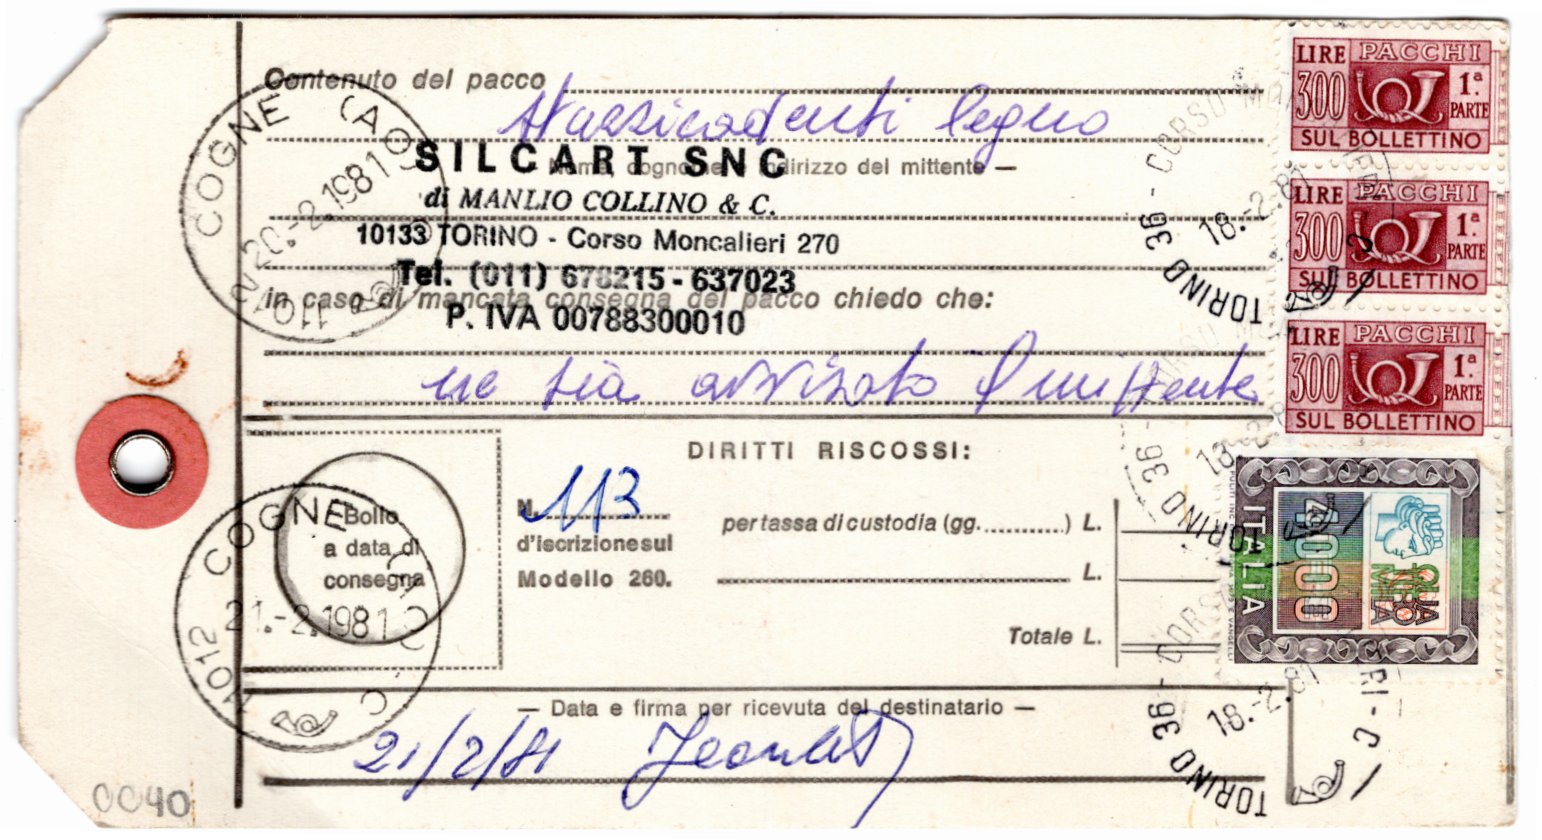 Contenuto del pacco
Stuzzicadenti legno
Nome, cognome e indirizzo del mittente —
SILCART SNC
di MANLIO COLLINO & C.
10133 TORINO - Corso Moncalieri 270
Tel. (011) 678215 - 637023
in caso di mancata consegna del pacco chiedo che:
P. IVA 00788300010
ne sia avvisato il mittente
DIRITTI RISCOSSI:
Bollo
a data di
consegna
N. 113
d'iscrizione sul
Modello 260.
per tassa di custodia (gg...........) L.
L.
Totale L.
— Data e firma per ricevuta del destinatario —
21/2/81
0040
COGNE (AO)
20.-2.1981
COGNE
21.-2.1981
11012
LIRE PACCHI
300 1.ª
PARTE
SUL BOLLETTINO
LIRE PACCHI
300 1.ª
PARTE
SUL BOLLETTINO
LIRE PACCHI
300 1.ª
PARTE
SUL BOLLETTINO
ITALIA
4000
QUATTROMILA
TORINO 36 - CORSO
18.-2.81
TORINO 36
18.-2.81
TORINO 36 - CORSO